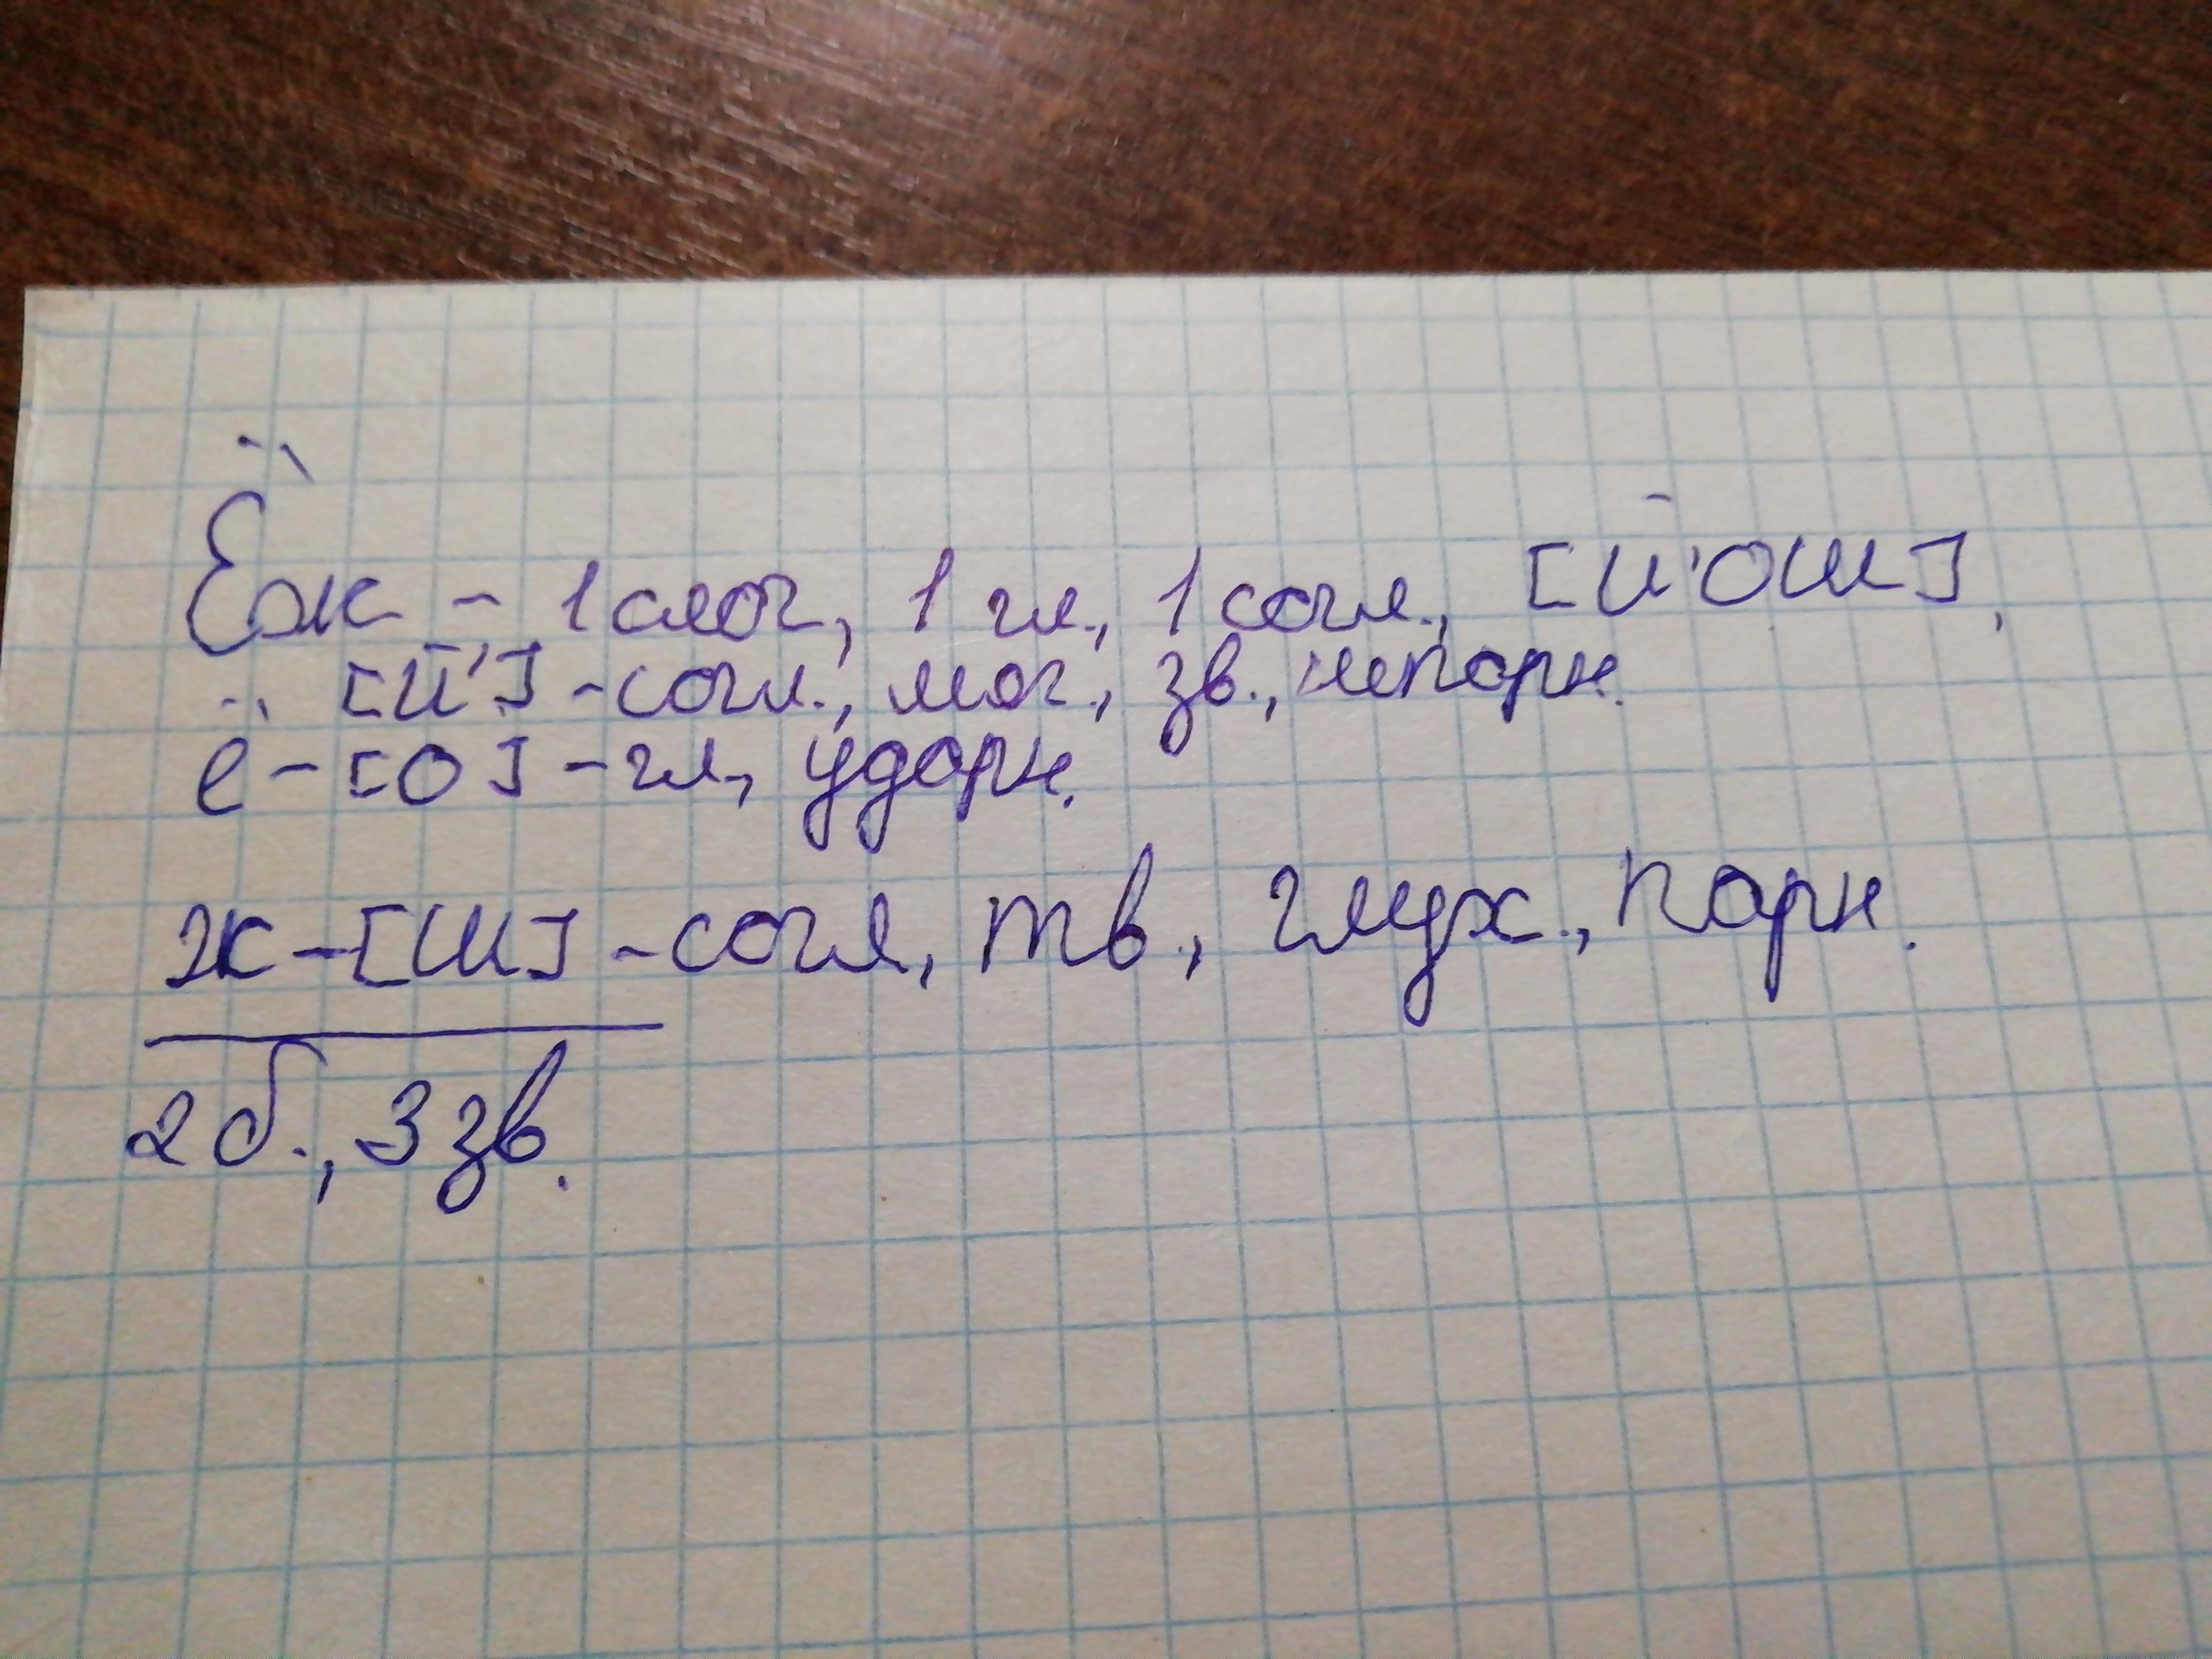 Ёж - 1 слог, 1 гл., 1 согл., [Й'ОШ],
[Й'] - согл., мяг., зв., непарн.
ё - [О] - гл, ударн.
ж - [Ш] - согл, тв., глух., парн.
2 б., 3 зв.